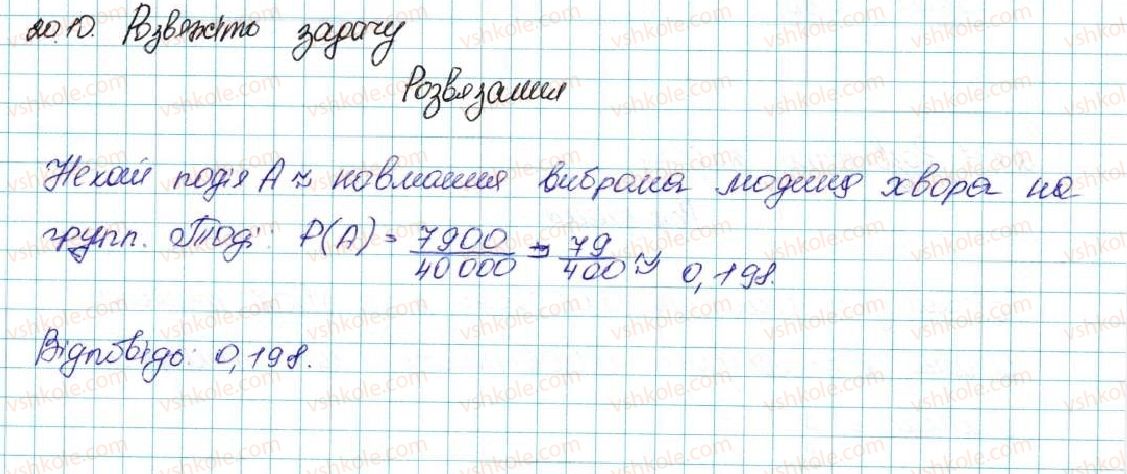 20.10. Розвяжіть задачу
Розвязання
Нехай подія A ~ навмання вибрана людина хвора на
групп. Тоді: P(A) = 7900/40 000 = 79/400 ≈ 0,198.
Відповідь: 0,198.